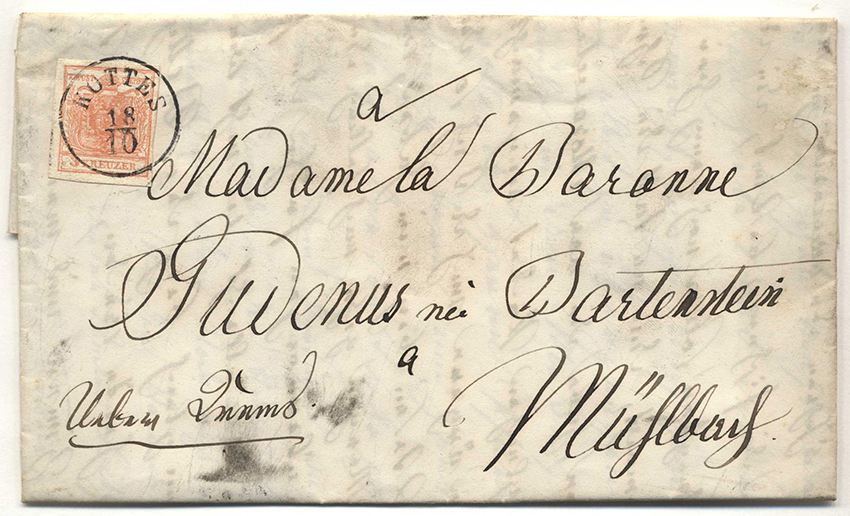 KOTTES
18
10
3 KREUZER
à
Madame la Baronne
Gudenus née Bartenstein
a
Mühlbach.
Ueber Krems.